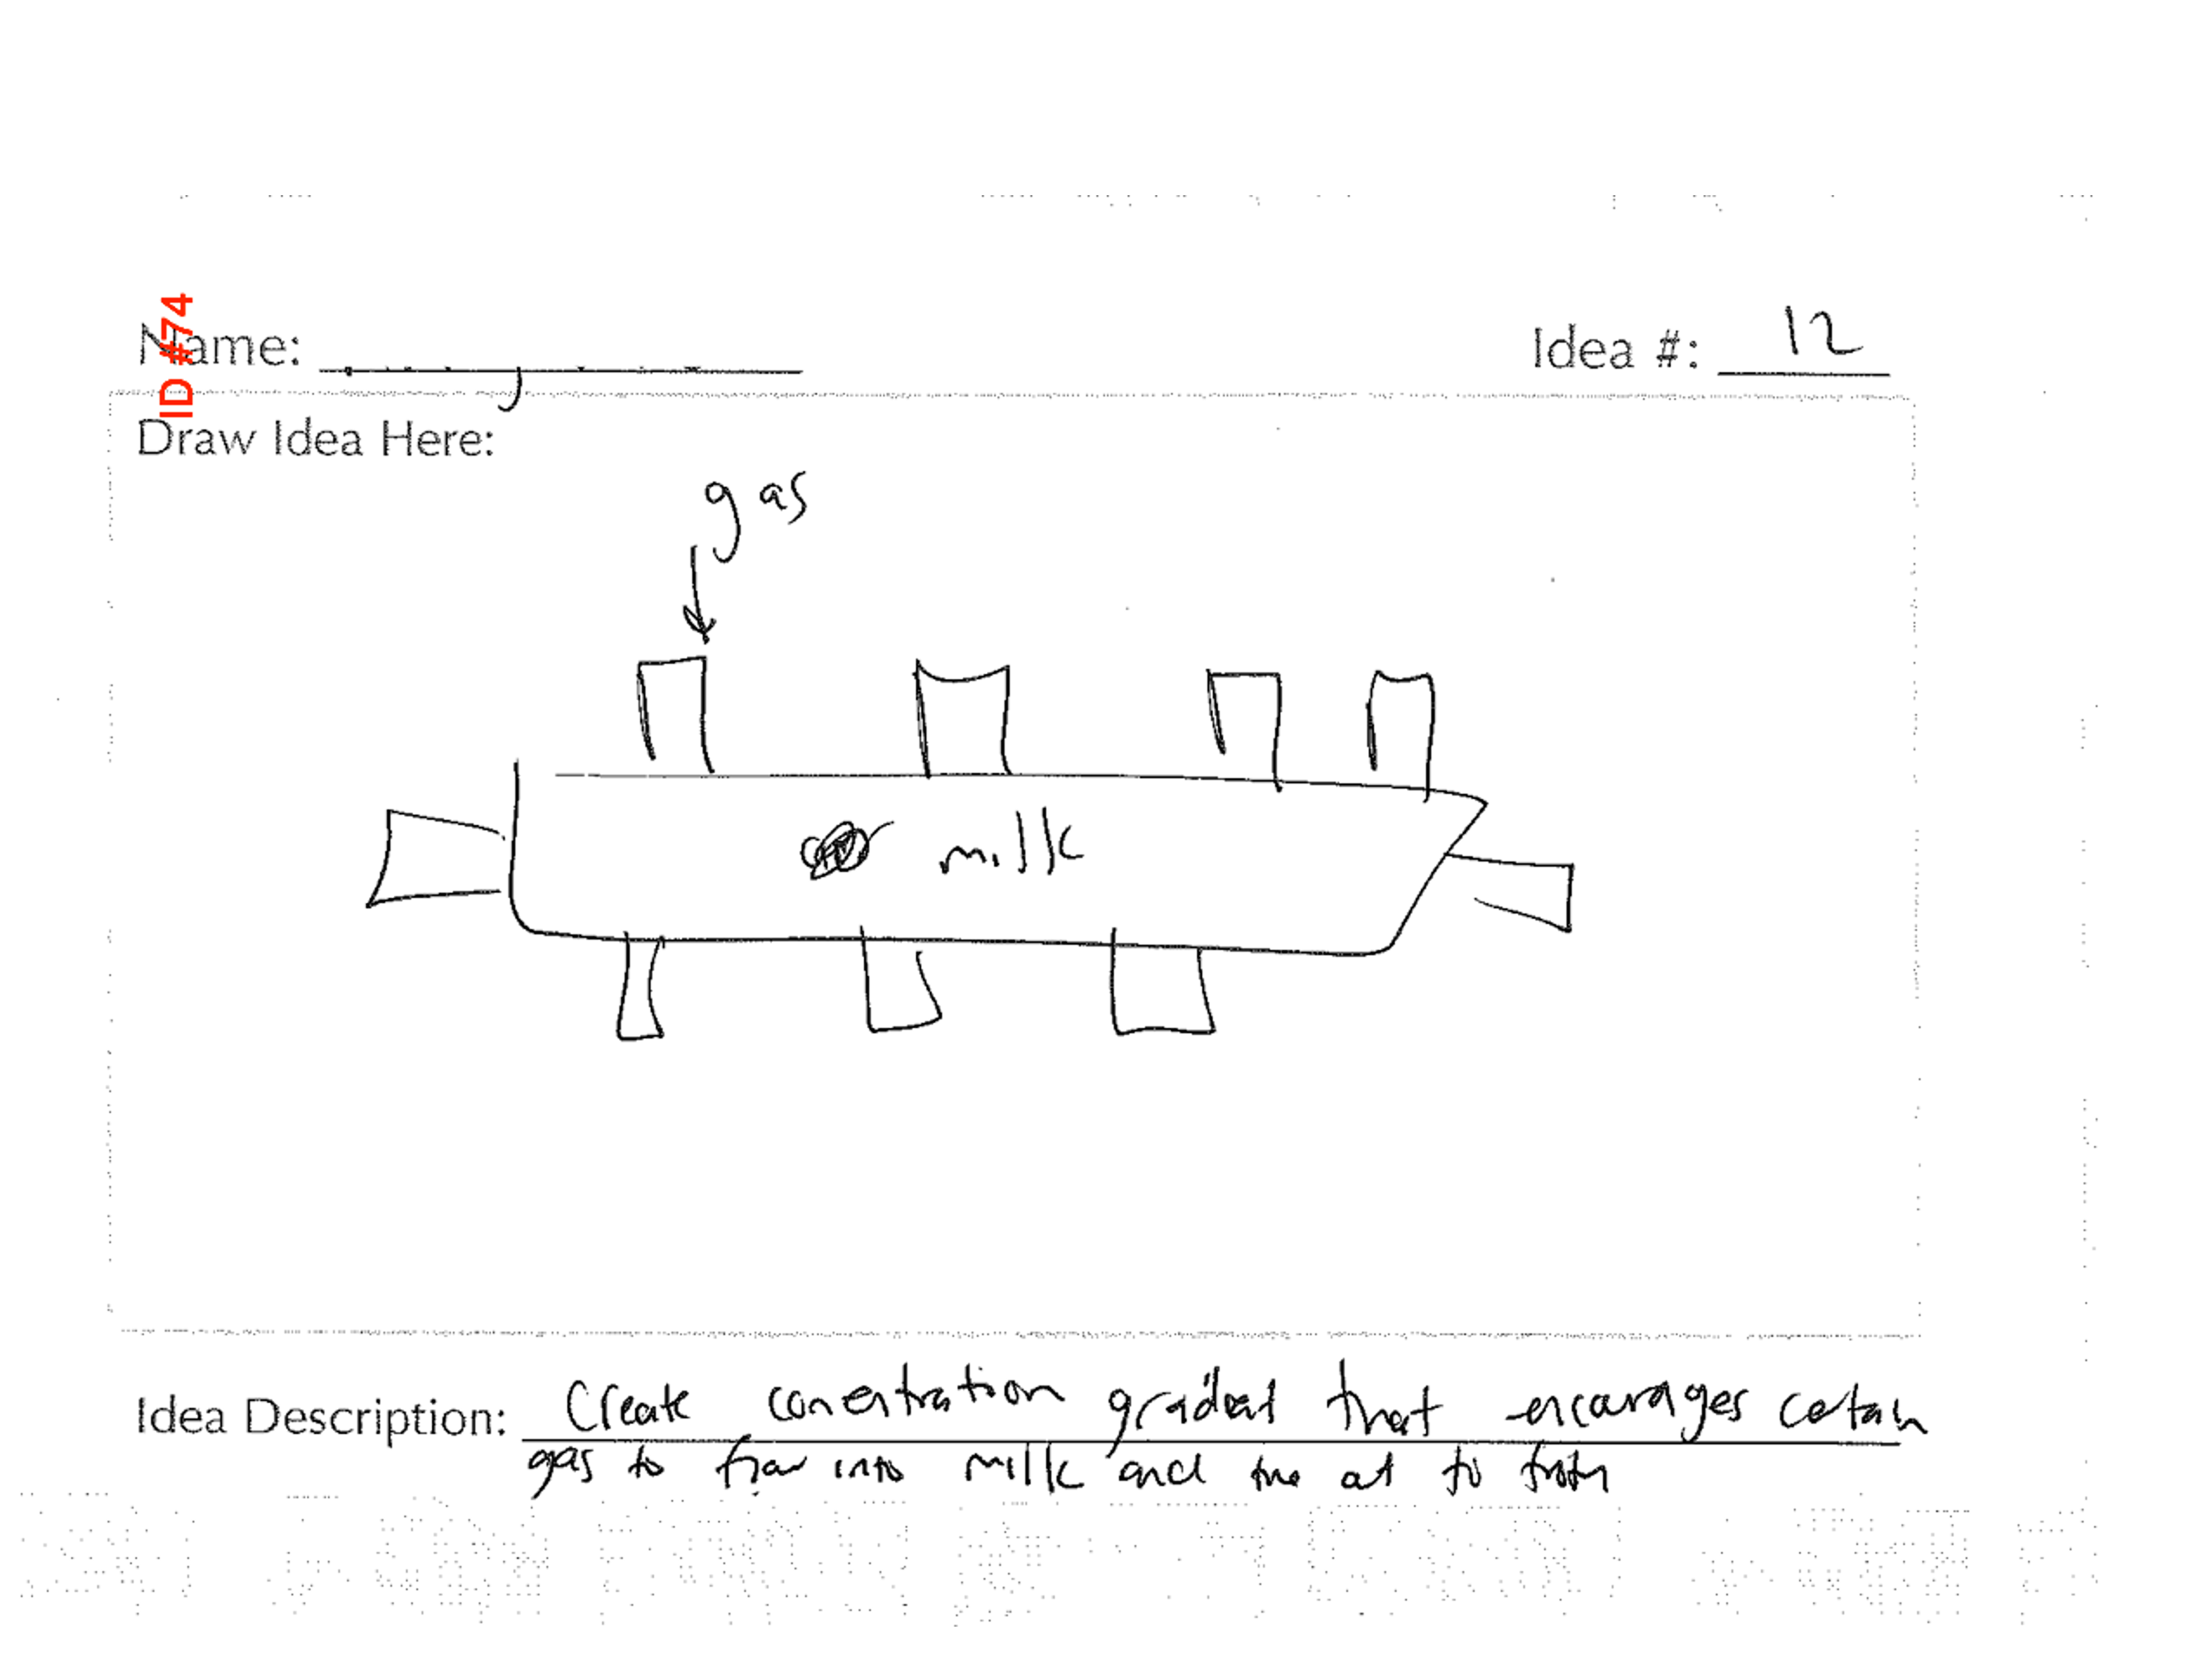 ID #74
Name:
Idea #: 12
Draw Idea Here:
gas
milk
Idea Description: Create conentration gradient that encourages certain
gas to flow into milk and out to froth